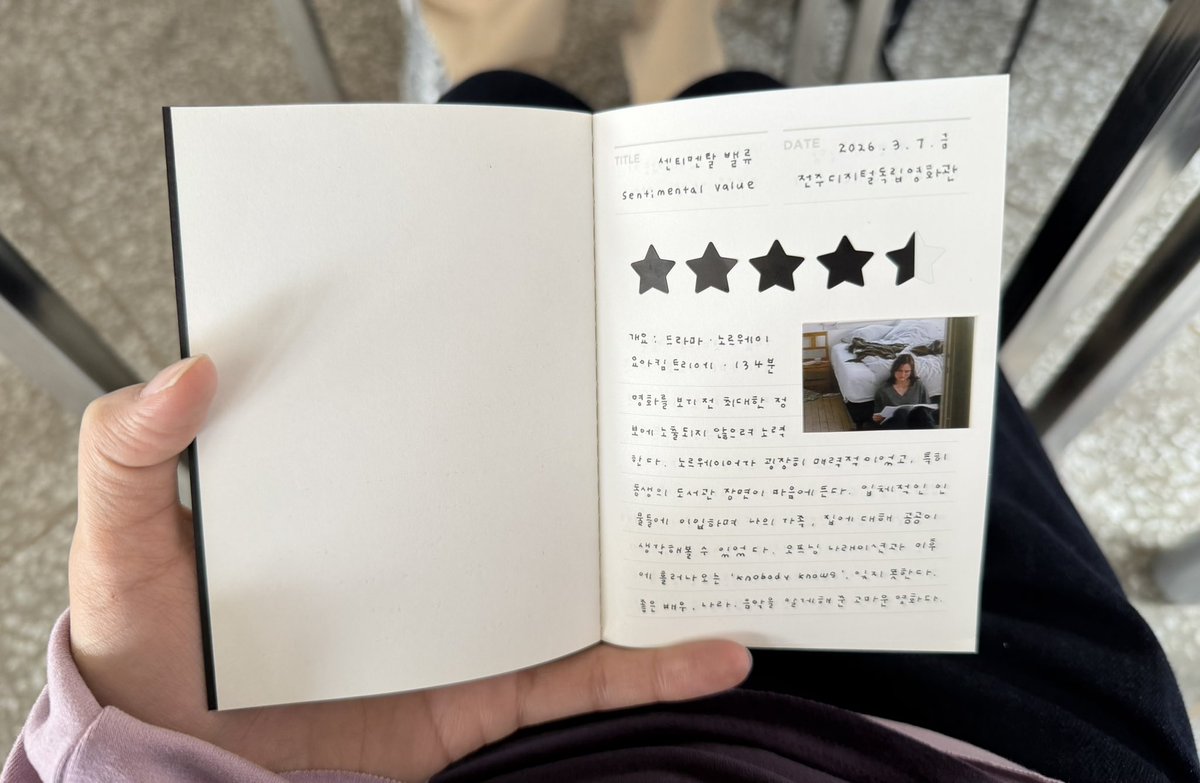 TITLE 센티멘탈 밸류
sentimental value
DATE 2026.3.7.금
전주디지털독립영화관
개요: 드라마·노르웨이
요아킴 트리에·134분
영화를 보기 전 최대한 정
보에 노출되지 않으려 노력
한다. 노르웨이어가 굉장히 매력적이었고, 특히
동생의 도서관 장면이 마음에 든다. 입체적인 인
물들에 이입하며 나의 가족, 집에 대해 곰곰이
생각해볼 수 있었다. 오프닝 나레이션과 이후
에 흘러나오는 'knobody knows', 잊지 못한다.
좋은 배우, 나라, 음악을 알게해준 고마운 영화다.